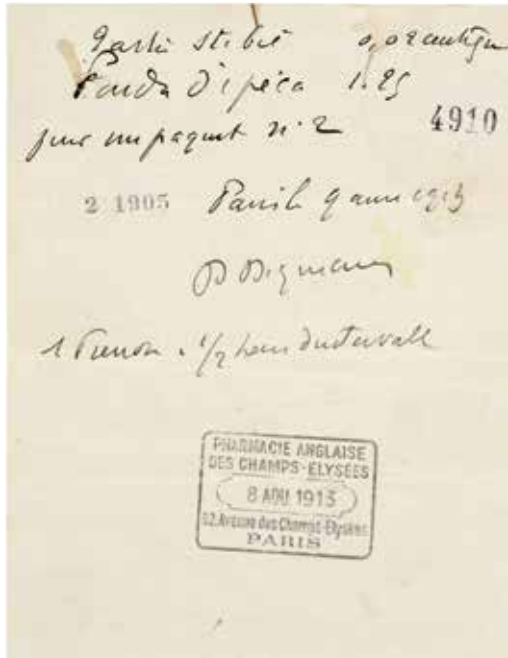 stibié 0,02 centigr
Poudre d'ipéca 1.25
pour un paquet n° 2
4910
2 1905
Paris le 9 1913
1/2 heure d'intervalle
PHARMACIE ANGLAISE
DES CHAMPS-ELYSÉES
8 AOU. 1913
62, Avenue des Champs-Elysées
PARIS